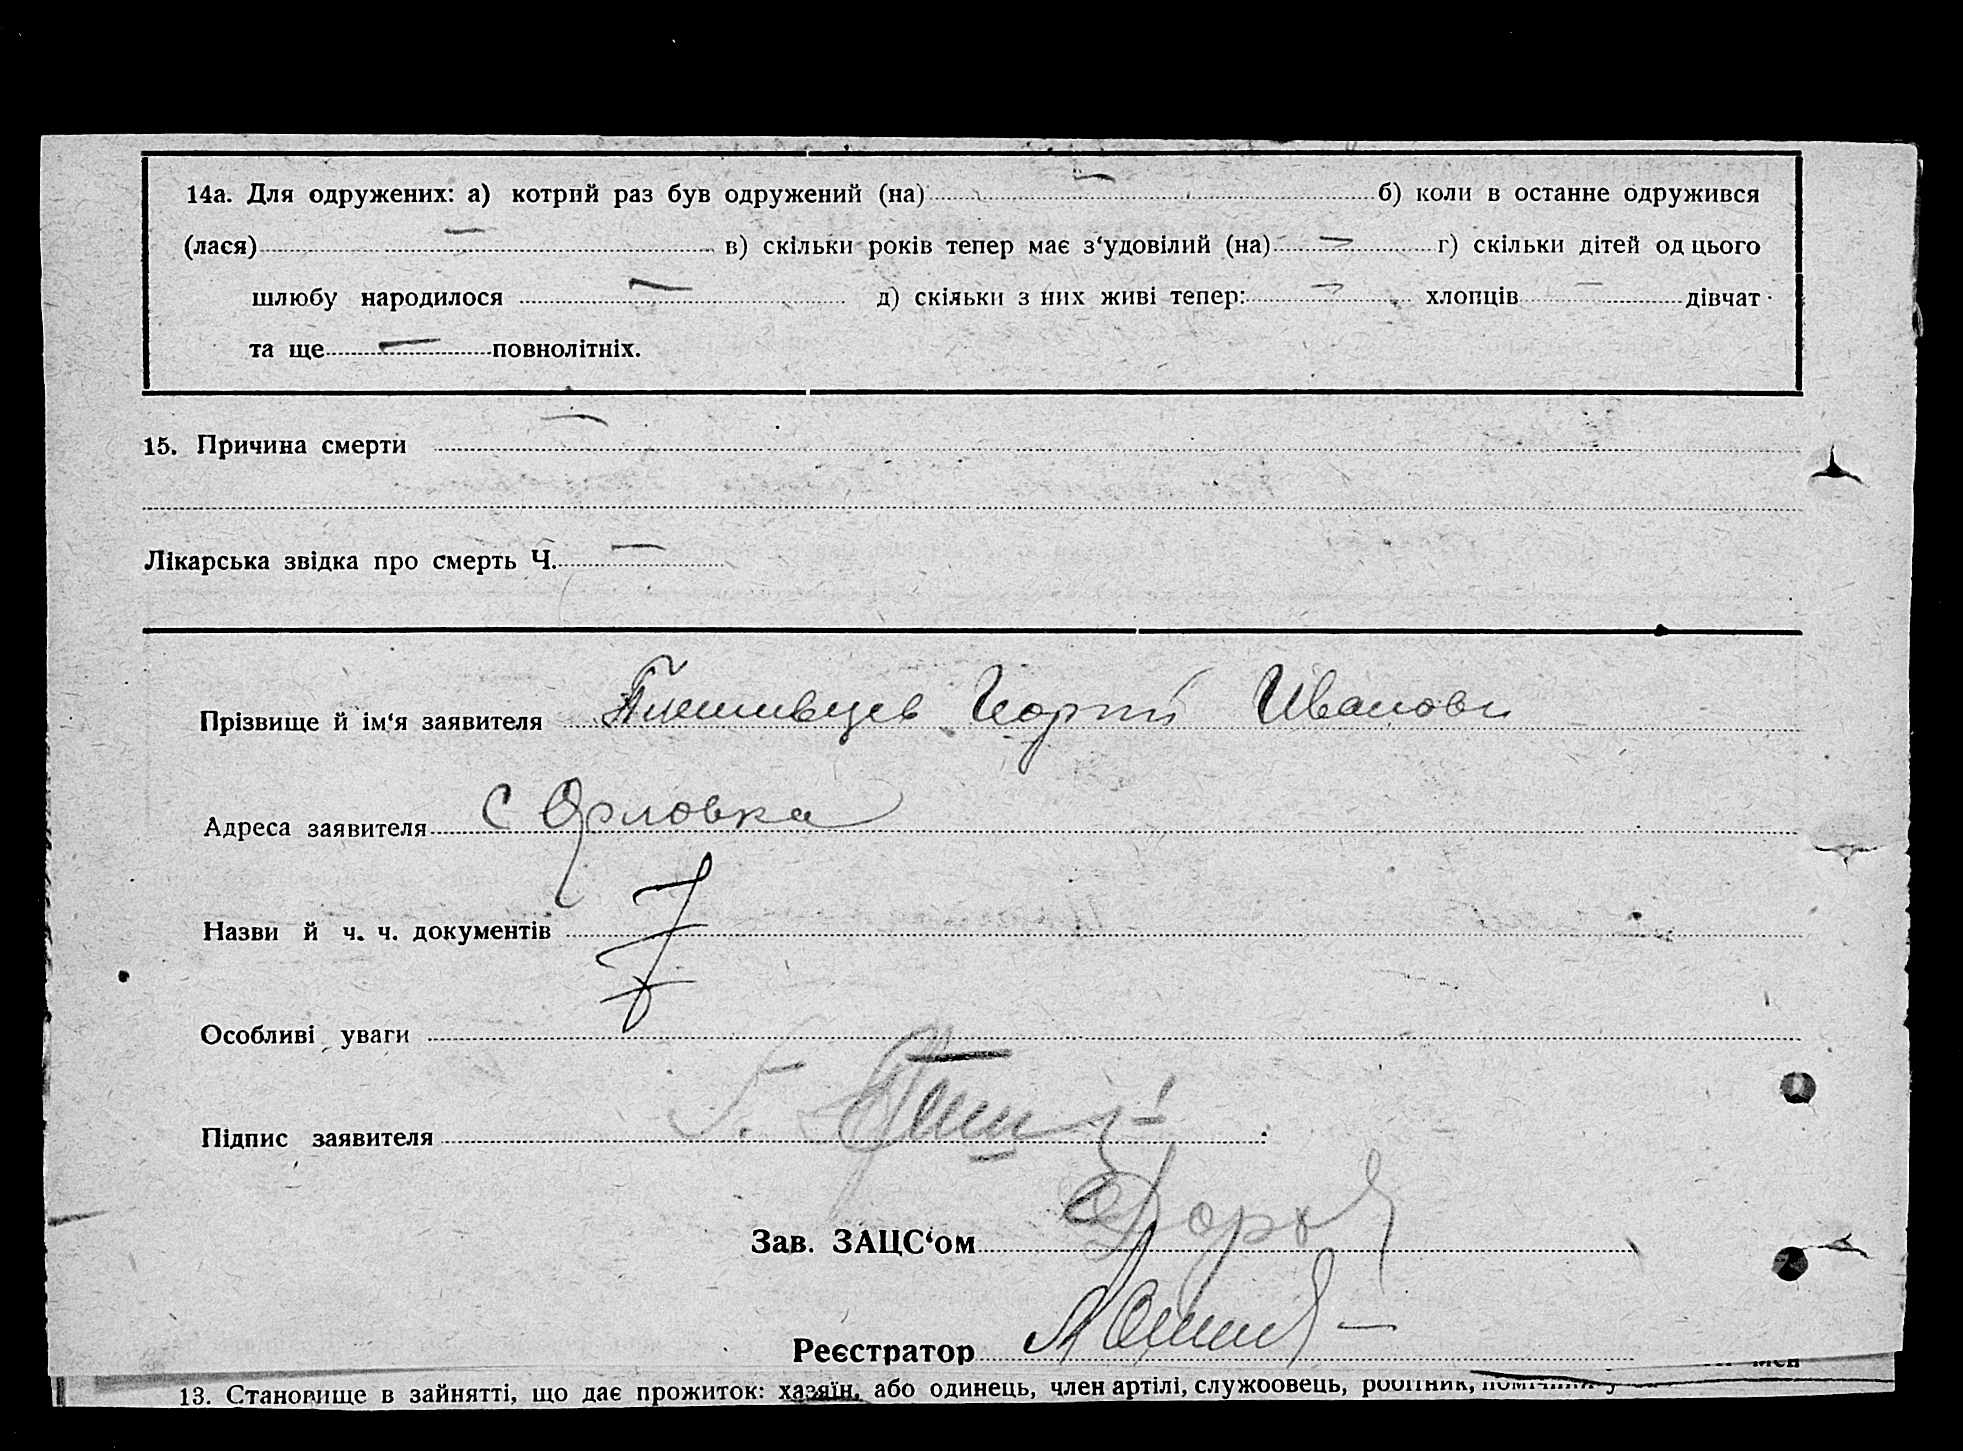 14а. Для одружених: а) котрий раз був одружений (на) — б) коли в останне одружився
(лася) — в) скільки років тепер має з‘удовілий (на) — г) скільки дітей од цього
шлюбу народилося — д) скільки з них живі тепер: — хлопців — дівчат
та ще — повнолітніх.
15. Причина смерти —
Лікарська звідка про смерть Ч. —
Прізвище й ім‘я заявителя Георгій Иванови
Адреса заявителя с Орловка
Назви й ч. ч. документів
Особливі уваги
Підпис заявителя
Зав. ЗАЦС‘ом
Реєстратор
13. Становище в зайнятті, що дає прожиток: хазяїн, або одинець, член артілі, службовець, робітник,